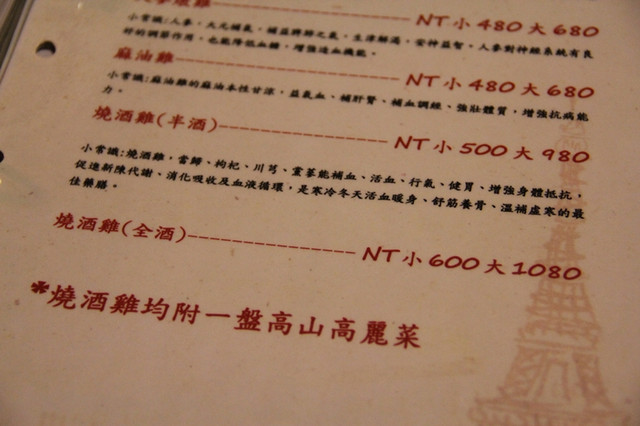 NT小480大680
小常識:人參,大元補氣,補益脾肺之氣,生津解渴,安神益智,人參對神經系統有良
好的調節作用,也能降低血糖,增強造血機能。
麻油雞-----------------------NT小480大680
小常識:麻油雞的麻油本性甘涼,益氣血、補肝腎、補血調經、強壯體質,增強抗病能
力。
燒酒雞(半酒)-----------------NT小500大980
小常識:燒酒雞,當歸、枸杞、川芎、黨蔘能補血、活血、行氣、健胃、增強身體抵抗,
促進新陳代謝、消化吸收及血液循環,是寒冷冬天活血暖身、舒筋養骨、溫補虛寒的最
佳藥膳。
燒酒雞(全酒)-----------------NT小600大1080
*燒酒雞均附一盤高山高麗菜